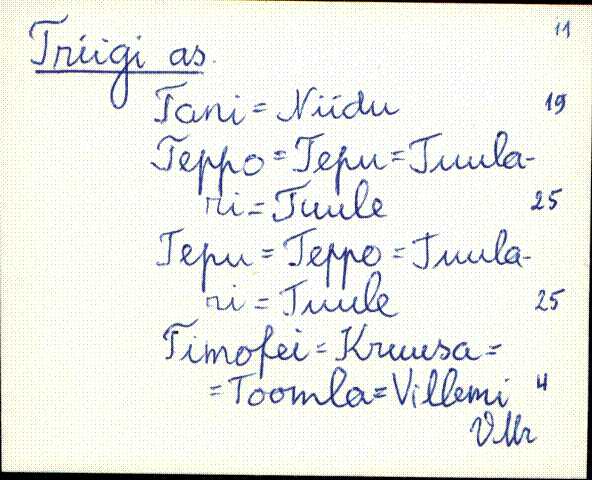 11
Triigi as.
Tani = Niidu 19
Teppo = Tepu = Tuula-
ri = Tuule 25
Tepu = Teppo = Tuula-
ri = Tuule 25
Timofei = Kruusa =
= Toomla = Villemi 4
VMr